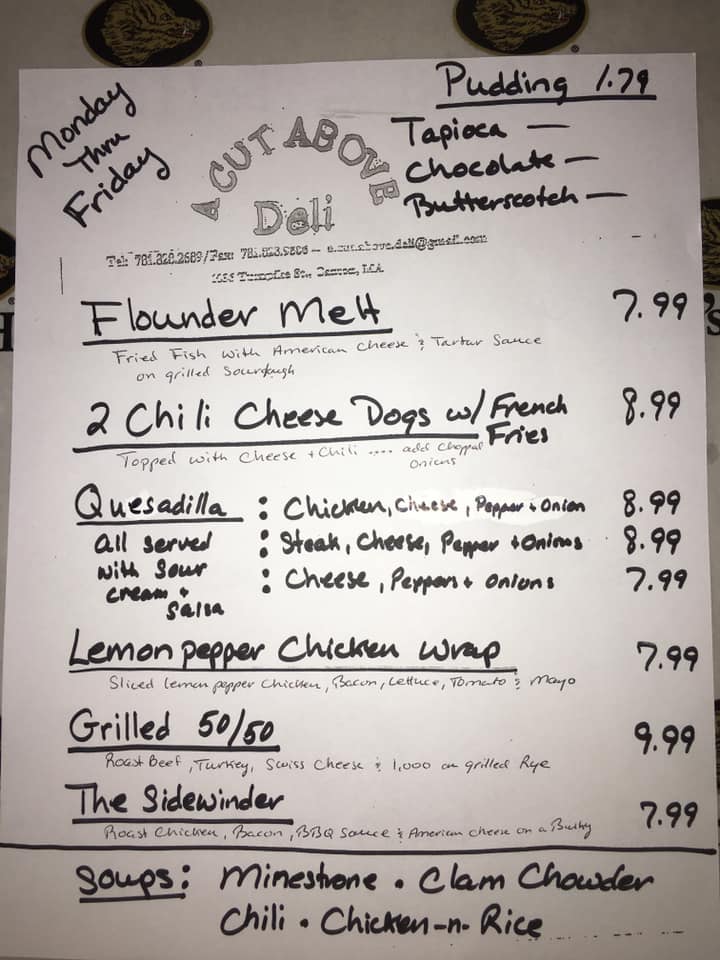 Monday
Thru
Friday
A CUT ABOVE
Deli
Pudding 1.79
Tapioca —
Chocolate —
Butterscotch —
Tel: 781.828.2689/Fax:
Flounder Melt 7.99
Fried Fish with American Cheese & Tartar Sauce
on grilled Sourdough
2 Chili Cheese Dogs w/ French Fries 8.99
Topped with Cheese + Chili .... add Chopped
Onions
Quesadilla : Chicken, Cheese, Pepper + Onion 8.99
all served : Steak, Cheese, Pepper + Onions 8.99
with Sour : Cheese, Peppers + Onions 7.99
cream +
Salsa
Lemon pepper Chicken Wrap 7.99
Sliced lemon pepper Chicken, Bacon, Lettuce, Tomato & Mayo
Grilled 50/50 9.99
Roast Beef, Turkey, Swiss Cheese & 1,000 on grilled Rye
The Sidewinder 7.99
Roast Chicken, Bacon, BBQ Sauce & American cheese on a Bulky
Soups: Minestrone • Clam Chowder
Chili • Chicken-n-Rice